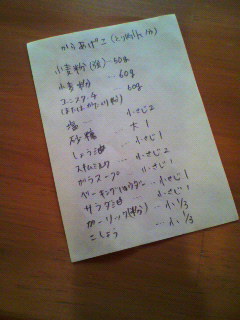 からあげこ
小麦粉(強)…50g
小麦粉 … 60g
コーンスターチ … 60g
(またはかたくり粉)
塩 … 小さじ2
砂糖 … 大1
しょう油 … 小さじ1
スキムミルク … 小さじ2
がらスープ … 小さじ1
ベーキングパウダー … 小さじ1
サラダ油 … 小さじ1
ガーリック(粉) … 小1/3
こしょう … 小1/3